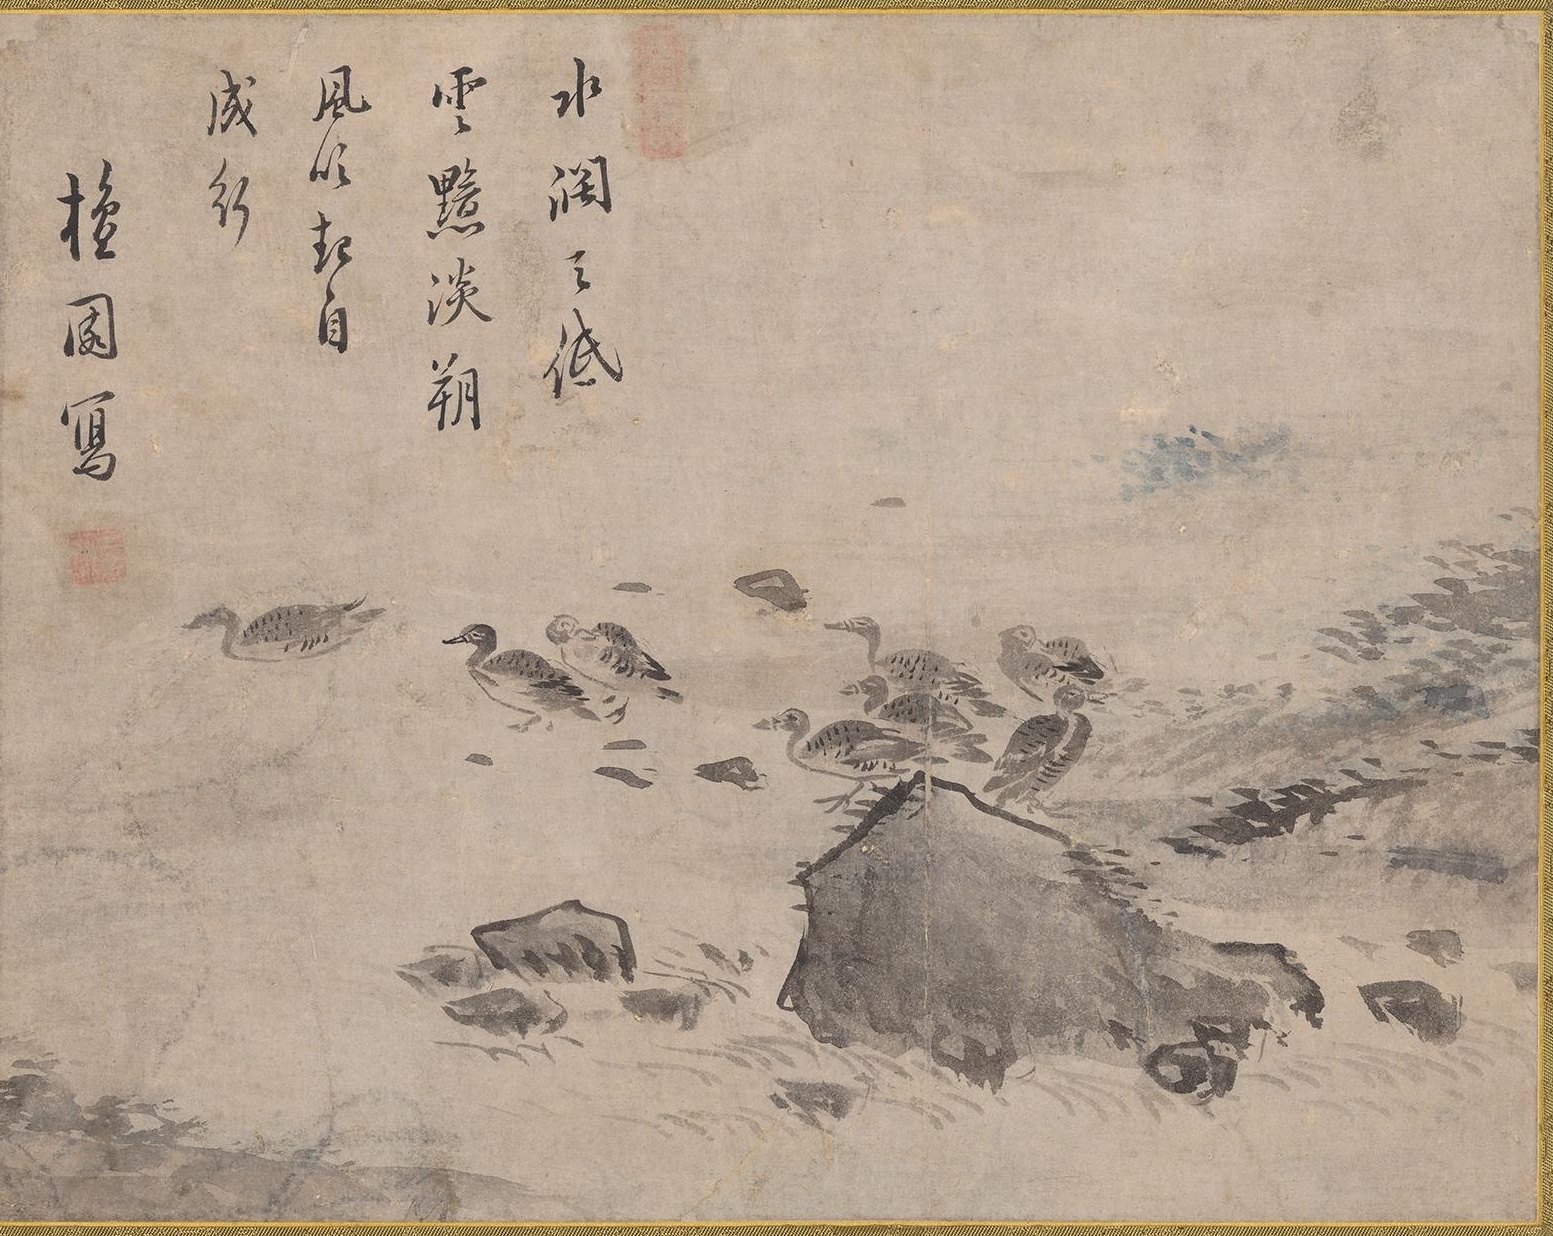 水濶天低
雲黯淡朔
風吹起自
成行
檀園寫